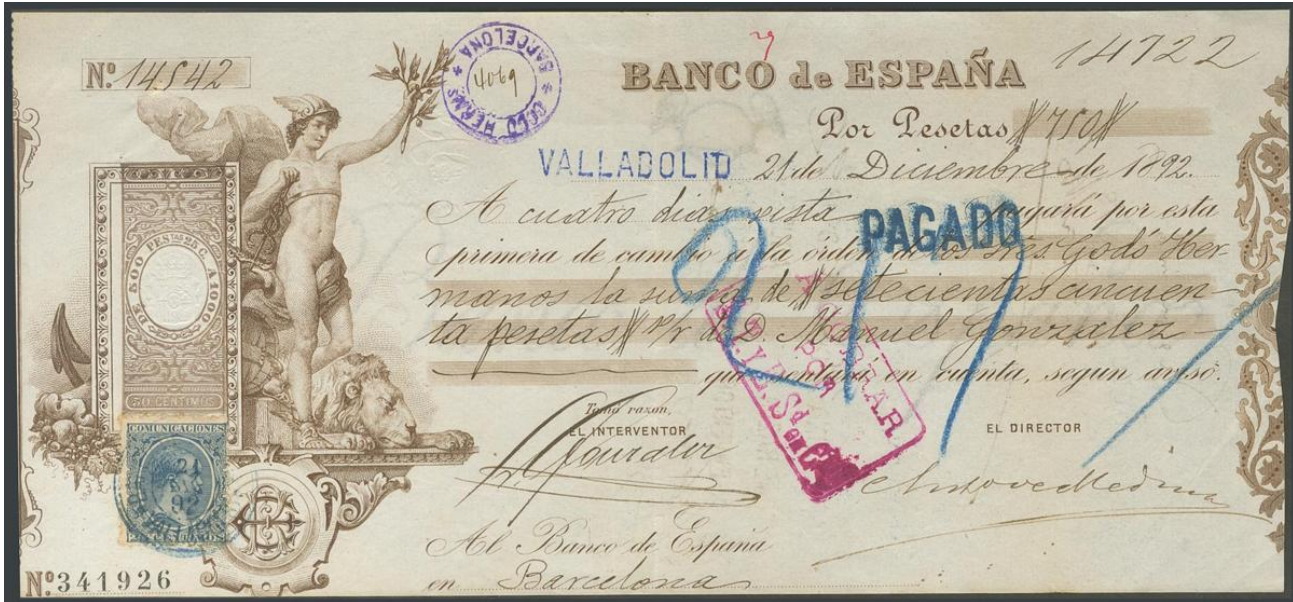 Nº 14542
GODÓ HERMS * BARCELONA *
4069
14722
BANCO de ESPAÑA
Por Pesetas 750
VALLADOLID 21 de Diciembre de 1892.
A cuatro dias vista pagará por esta
PAGADO
primera de cambio á la orden de los Sres. Godó Her-
manos la suma de setecientas cincuen
ta pesetas v/r de D. Manuel Gonzalez
que sentará en cuenta, segun aviso.
217
A COBRAR
POR
Sd en C
DE 500 PESTAS 25 C. A 1000
50 CENTIMOS
COMUNICACIONES
21
DIC
92
Tomó razon,
EL INTERVENTOR
EL DIRECTOR
Gonzalez
Al Banco de España
en Barcelona
Nº 341926